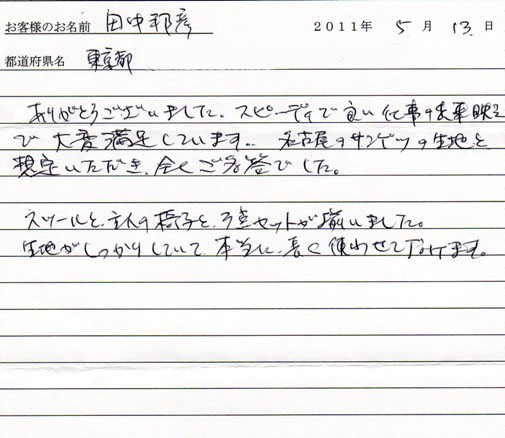 お客様のお名前 田中邦彦 2011年 5月 13日
都道府県名 東京都
ありがとうございました。スピーディで良い仕事の出来映え
で大変満足しています。名古屋のサンゲツの生地を
想定いただき、全く ご名答でした。
スツールと、主人の椅子と、3点セットが揃いました。
生地がしっかりしていて、本当に、長く使わせて頂けます。